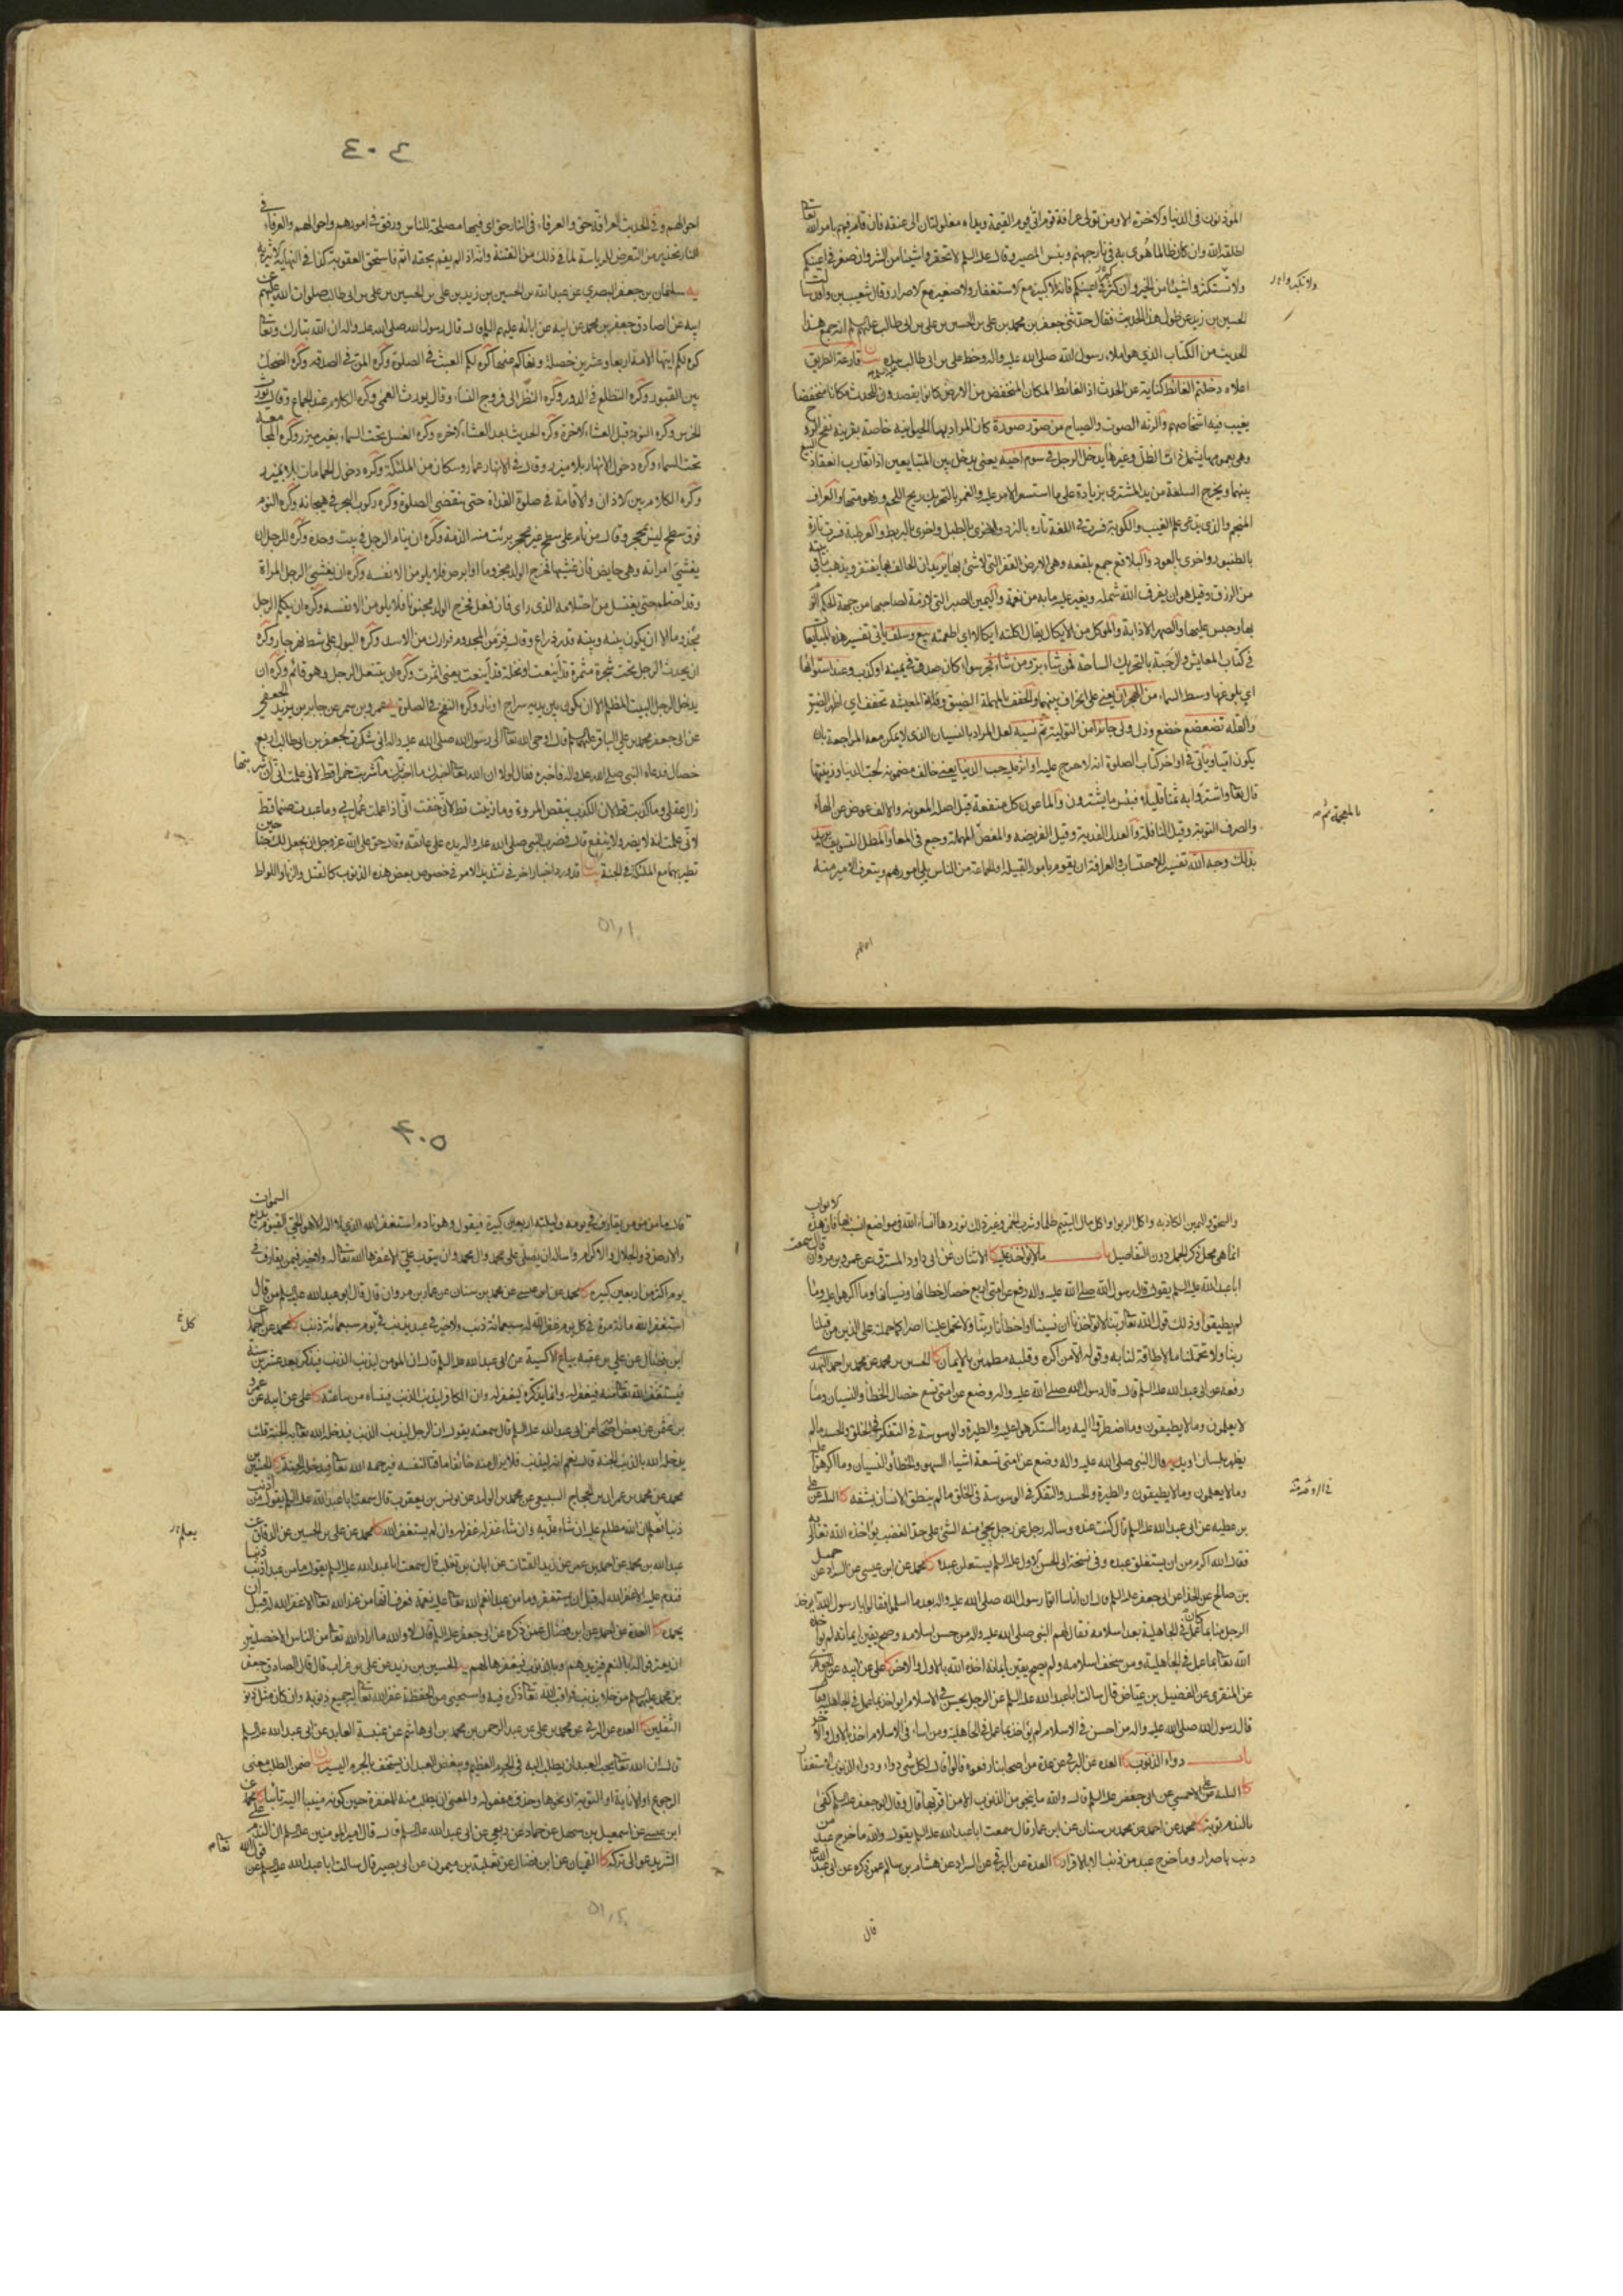 المؤذنون في الدنيا والاخرة الا ومن تولى عرافة قوم اتى يوم القيمة ويداه مغلولتان الى عنقه فان قام فيهم بامر الله تعالى
اطلقه الله وان كان ظالما هوى به في نار جهنم وبئس المصير وقال عليه السلم لا تحقروا شيئا من الشر وان صغر في اعينكم
ولا تستكثروا شيئا من الخير وان كثر في اعينكم فانه لا كبيرة مع الاستغفار ولا صغيرة مع الاصرار وقال شعيب بن واقد سالت
الحسين بن زيد عن طول هذا الحديث فقال حدثني جعفر بن محمد بن علي بن الحسين بن علي بن ابي طالب عليهم السلم انه جمع هذا
الحديث من الكتاب الذي هو املاء رسول الله صلى الله عليه واله وخط علي بن ابي طالب بيده قارعة الطريق
اعلاه دخلتم الغائط كناية عن الحدث اذ الغائط المكان المنخفض من الارض كانوا يقصدون للحدث مكانا منخفضا
يغيب فيه اشخاصهم والرنة الصوت والصياح من صور صورة كان المراد بها الحيوانية خاصة بقرينة نفخ الروح
وهي بعمومها يشمل ذات الظل وغيرها يدخل الرجل في سوم اخيه يعني يدخل بين المتبايعين اذا تقارب انعقاد البيع
بينهما ويخرج السلعة من يد المشتري بزيادة على ما استسعر الامر عليه والغمر بالتحريك ريح اللحم وزهومتها والعراف
المنجم والذي يدعي علم الغيب والكوبة فسرت في اللغة تارة بالنرد واخرى بالطبل واخرى بالبربط والعرطبة فسرت تارة
بالطنبور واخرى بالعود والبلاقع جمع بلقعه وهي الارض القفر التي لا شئ بها يريد ان الحالف بها يفتقر ويذهب ما في بيته
من الرزق وقيل هو ان يفرق الله شمله ويغير عليه ما به من نعمة واليمين الصبر التي لازمة لصاحبها من جهة الحكم
في كتاب المعايش والرحبة بالتحريك الساحة لمن شاء بر ومن شاء فجر سواء كان صدق في يمينه او كذب وعند استوائها
والقلة تضعضع خضع وذل
يكون اتيا وياتي في اواخر كتاب الصلوة انه لا حرج عليه
قال تعالى واشتروا به ثمنا قليلا فبئس ما يشترون والماعون كل منفعة قيل اصله المعونة والالف عوض عن الهاء
والصرف التوبة وقيل النافلة والعدل الفدية وقيل الفريضه
بذلك وجه الله تفسير للاحتساب والعرافة ان يقوم بامور القبيلة او الجماعة من الناس يلي امورهم ويتعرف الامير منه
٤٠٤
احوالهم وفي الحديث العرافة حق والعرفاء في النار حق اي فيها مصلحة للناس ورفق في امورهم واحوالهم والعرفاء في
النار تحذير من التعرض للرياسة لما في ذلك من الفتنة وانه اذا لم يقم بحقه اثم فاستحق العقوبة كذا في النهاية الاثيرية
يه سليمان بن جعفر البصري عن عبد الله بن الحسين بن زيد بن علي بن الحسين بن علي بن ابي طالب صلوات الله عليهم عن
ابيه عن الصادق جعفر بن محمد عن ابيه عن ابائه عليهم السلم قال قال رسول الله صلى الله عليه واله ان الله تبارك وتعالى
كره لكم ايتها الامة اربعا وعشرين خصلة ونهاكم عنها كره لكم العبث في الصلوة وكره المن في الصدقه وكره الضحك
بين القبور وكره التطلع في الدور وكره النظر الى فروج النساء وقال يورث العمى وكره الكلام عند الجماع وقال يورث
الخرس وكره النوم قبل العشاء الاخرة وكره الحديث بعد العشاء الاخره وكره الغسل تحت السماء بغير ميزر وكره المجامعة
تحت السماء وكره دخول الانهار بلا ميزر وقال في الانهار عمار وسكان من الملئكة وكره دخول الحمامات الا بميزر
وكره الكلام بين الاذان والاقامة في صلوة الغداة حتى ينقضي الصلوة وكره ركوب البحر في هيجانه وكره النوم
فوق سطح ليس بمحجر وقال من نام على سطح غير محجر برئت منه الذمة وكره ان ينام الرجل في بيت وحده وكره للرجل ان
يغشي امراته وهي حايض فان غشيها فخرج الولد مجذوما او ابرص فلا يلومن الا نفسه وكره ان يغشي الرجل المراة
وقد احتلم حتى يغتسل من احتلامه الذي راى فان فعل فخرج الولد مجنونا فلا يلومن الا نفسه وكره ان يكلم الرجل
مجذوما الا ان يكون بينه وبينه قدر ذراع وقال فر من المجذوم فرارك من الاسد وكره البول على شط نهر جار وكره
ان يحدث الرجل تحت شجرة مثمرة قد اينعت او نخلة قد اينعت يعني اثمرت وكره ان يتنعل الرجل وهو قائم وكره ان
يدخل الرجل البيت المظلم الا ان يكون بين يديه سراج او نار وكره النفخ في الصلوة يه عمرو بن شمر عن جابر بن يزيد الجعفي
عن ابي جعفر محمد بن علي الباقر عليهما السلم قال اوحى الله تعالى الى رسول الله صلى الله عليه واله اني شكرت لجعفر بن ابي طالب اربع
خصال فدعاه النبي صلى الله عليه واله فاخبره فقال لولا ان الله تعالى اخبرك ما اخبرتك ما شربت خمرا قط لاني علمت اني ان شربتها
زال عقلي وما كذبت قط لان الكذب ينقص المروءة وما زنيت قط لاني خفت اني اذا عملت عمل بي وما عبدت صنما قط
لاني علمت انه لا يضر ولا ينفع قال فضرب النبي صلى الله عليه واله يده على عاتقه وقال حق على الله عز وجل ان يجعل لك جناحين
تطير بهما مع الملئكة في الجنة بيان قد ورد اخبار اخر في تشديد الامر في خصوص بعض هذه الذنوب كالقتل والزنا واللواط
والسحق واليمين الكاذبه واكل الربوا واكل مال اليتيم ظلما وشرب الخمر وغير ذلك نوردها انشاء الله في مواضع انسب بها فان هذه الابواب
انما هي محل ذكر الجمل دون التفاصيل باب ما لا يؤاخذ عليه كا الاثنان عن ابي داود المسترق عن عمرو بن مروان قال سمعت
ابا عبد الله عليه السلم يقول قال رسول الله صلى الله عليه واله رفع عن امتي اربع خصال خطاؤها ونسيانها وما اكرهوا عليه وما
لم يطيقوا وذلك قول الله تعالى ربنا لا تؤاخذنا ان نسينا او اخطانا ربنا ولا تحمل علينا اصرا كما حملته على الذين من قبلنا
ربنا ولا تحملنا ما لا طاقة لنا به وقوله الا من اكره وقلبه مطمئن بالايمان كا الحسين بن محمد عن محمد بن احمد النهدي
رفعه عن ابي عبد الله عليه السلم قال قال رسول الله صلى الله عليه واله وضع عن امتي تسع خصال الخطا والنسيان وما
لا يعلمون وما لا يطيقون وما اضطروا اليه وما استكرهوا عليه والطيرة والوسوسة في التفكر في الخلق والحسد ما لم
يظهر بلسان او يد يه قال النبي صلى الله عليه واله وضع عن امتي تسعة اشياء السهو والخطا والنسيان وما اكرهوا عليه
وما لا يعلمون وما لا يطيقون والطيرة والحسد والتفكر في الوسوسة في الخلق ما لم ينطق الانسان بشفه كا الثلثة عن علي
بن عطيه عن ابي عبد الله عليه السلم قال كنت عنده وساله رجل عن رجل يجئ منه الشئ على حد الغضب يؤاخذه الله تعالى به
فقال الله اكرم من ان يستغلق عبده وفي نسخة ابي الحسن الاول عليه السلم يستعلن عبده كا محمد عن ابن عيسى عن السراد عن جميل
بن صالح عن الحذاء عن ابي جعفر عليه السلم قال ان اناسا اتوا رسول الله صلى الله عليه واله بعد ما اسلموا فقالوا يا رسول الله ايؤخذ
الرجل منا بما عمل في الجاهلية بعد اسلامه فقال لهم النبي صلى الله عليه واله من حسن اسلامه وصح يقين ايمانه لم يؤاخذه
الله تعالى بما عمل في الجاهلية ومن سخف اسلامه ولم يصح يقين ايمانه اخذه الله بالاول والاخر كا علي عن ابيه عن الجوهري
عن المنقري عن الفضيل بن عياض قال سالت ابا عبد الله عليه السلم عن الرجل يحسن في الاسلام ايؤاخذ بما عمل في الجاهلية فقال
قال رسول الله صلى الله عليه واله من احسن في الاسلام لم يؤاخذ بما عمل في الجاهلية ومن اساء في الاسلام اخذ بالاول والاخر
باب دواء الذنوب كا العدة عن البرقي عن عدة من اصحابنا رفعوه قالوا قال لكل شئ دواء ودواء الذنوب الاستغفار
كا الثلثة عن علي الاحمسي عن ابي جعفر عليه السلم قال والله ما ينجو من الذنوب الا من اقر بها قال وقال ابو جعفر عليه السلم كفى
بالندم توبة كا محمد عن احمد عن محمد بن سنان عن ابن عمار قال سمعت ابا عبد الله عليه السلم يقول والله ما خرج عبد من
ذنب باصرار وما خرج عبد من ذنب الا بالاقرار كا العدة عن البرقي عن السراد عن هشام بن سالم عمن ذكره عن ابي عبد الله
قال
٤٠٥
قال ما من مؤمن يقارف في يومه وليلته اربعين كبيرة فيقول وهو نادم استغفر الله الذي لا اله الا هو الحي القيوم بديع السموات
والارض ذو الجلال والاكرام واساله ان يصلي على محمد وال محمد وان يتوب علي الا غفرها الله تعالى له ولا خير فيمن يقارف في
يوم اكثر من اربعين كبيره كا محمد عن ابن عيسى عن محمد بن سنان عن عمار بن مروان قال قال ابو عبد الله عليه السلم من قال
استغفر الله مائة مرة في كل يوم غفر الله له سبعمائة ذنب ولا خير في عبد يذنب في يوم سبعمائة ذنب كا محمد عن احمد عن
ابن فضال عن علي بن عقبه بياع الاكسية عن ابي عبد الله عليه السلم قال ان المومن ليذنب الذنب فيذكر بعد عشرين سنة
فيستغفر الله تعالى منه فيغفر له وانما يذكره ليغفر له وان الكافر ليذنب الذنب فينساه من ساعته كا علي عن ابيه عن عمرو
بن عثمن عن بعض اصحابنا عن ابي عبد الله عليه السلم قال سمعته يقول ان الرجل ليذنب الذنب فيدخله الله تعالى به الجنة قلت
يدخله الله بالذنب الجنة قال نعم انه ليذنب فلا يزال منه خائفا ماقتا لنفسه فيرحمه الله تعالى فيدخله الجنة كا الحسين بن
محمد عن محمد بن عمران بن الحجاج السبيعي عن محمد بن الوليد عن يونس بن يعقوب قال سمعت ابا عبد الله عليه السلم يقول من اذنب
ذنبا فعلم ان الله مطلع عليه ان شاء عذبه وان شاء غفر له غفر له وان لم يستغفر الله كا محمد عن علي بن الحسين عن الدقاق عن
عبد الله بن محمد عن احمد بن عمر عن زيد القتات عن ابان بن تغلب قال سمعت ابا عبد الله عليه السلم يقول ما من عبد اذنب ذنبا
فندم عليه الا غفر الله له قبل ان يستغفر وما من عبد انعم الله تعالى عليه نعمة فعرف انها من عند الله تعالى الا غفر الله له قبل ان
يحمده كا العدة عن احمد عن ابن فضال عمن ذكره عن ابي جعفر عليه السلم قال لا والله ما اراد الله تعالى من الناس الا خصلتين
ان يعترفوا له بالنعم فيزيدهم وبالذنوب فيغفرها لهم يه الحسين بن زيد عن علي بن غراب قال قال الصادق جعفر
بن محمد عليهما السلم من خلا بذنب فراقب الله تعالى ذكره فيه واستحيى من الحفظة غفر الله تعالى له جميع ذنوبه وان كان مثل ذنوب
الثقلين كا العدة عن البرقي عن محمد بن علي عن عبد الرحمن بن محمد بن ابي هاشم عن عنبسة العابد عن ابي عبد الله عليه السلم
قال ان الله تعالى يحب العبد ان يطلب اليه في الجرم العظيم ويبغض العبد ان يستخف بالجرم اليسير بيان ضمن الطلب معنى
الرجوع او الانابة او التوبة او نحوها وحذف مفعوله والمعنى ان يطلب منه المغفرة حين كونه منيبا اليه تائبا كا محمد عن
ابن عيسى عن اسمعيل بن سهل عن حماد عن ربعي عن ابي عبد الله عليه السلم قال قال امير المومنين عليه السلم ان الندم على
الشر يدعو الى تركه كا القميان عن ابن فضال عن ثعلبة بن ميمون عن ابي بصير قال سالت ابا عبد الله عليه السلم عن قول الله تعالى